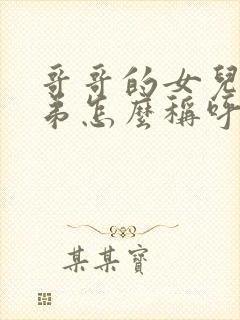 哥哥的女兒
弟怎麼稱呼
某某寶